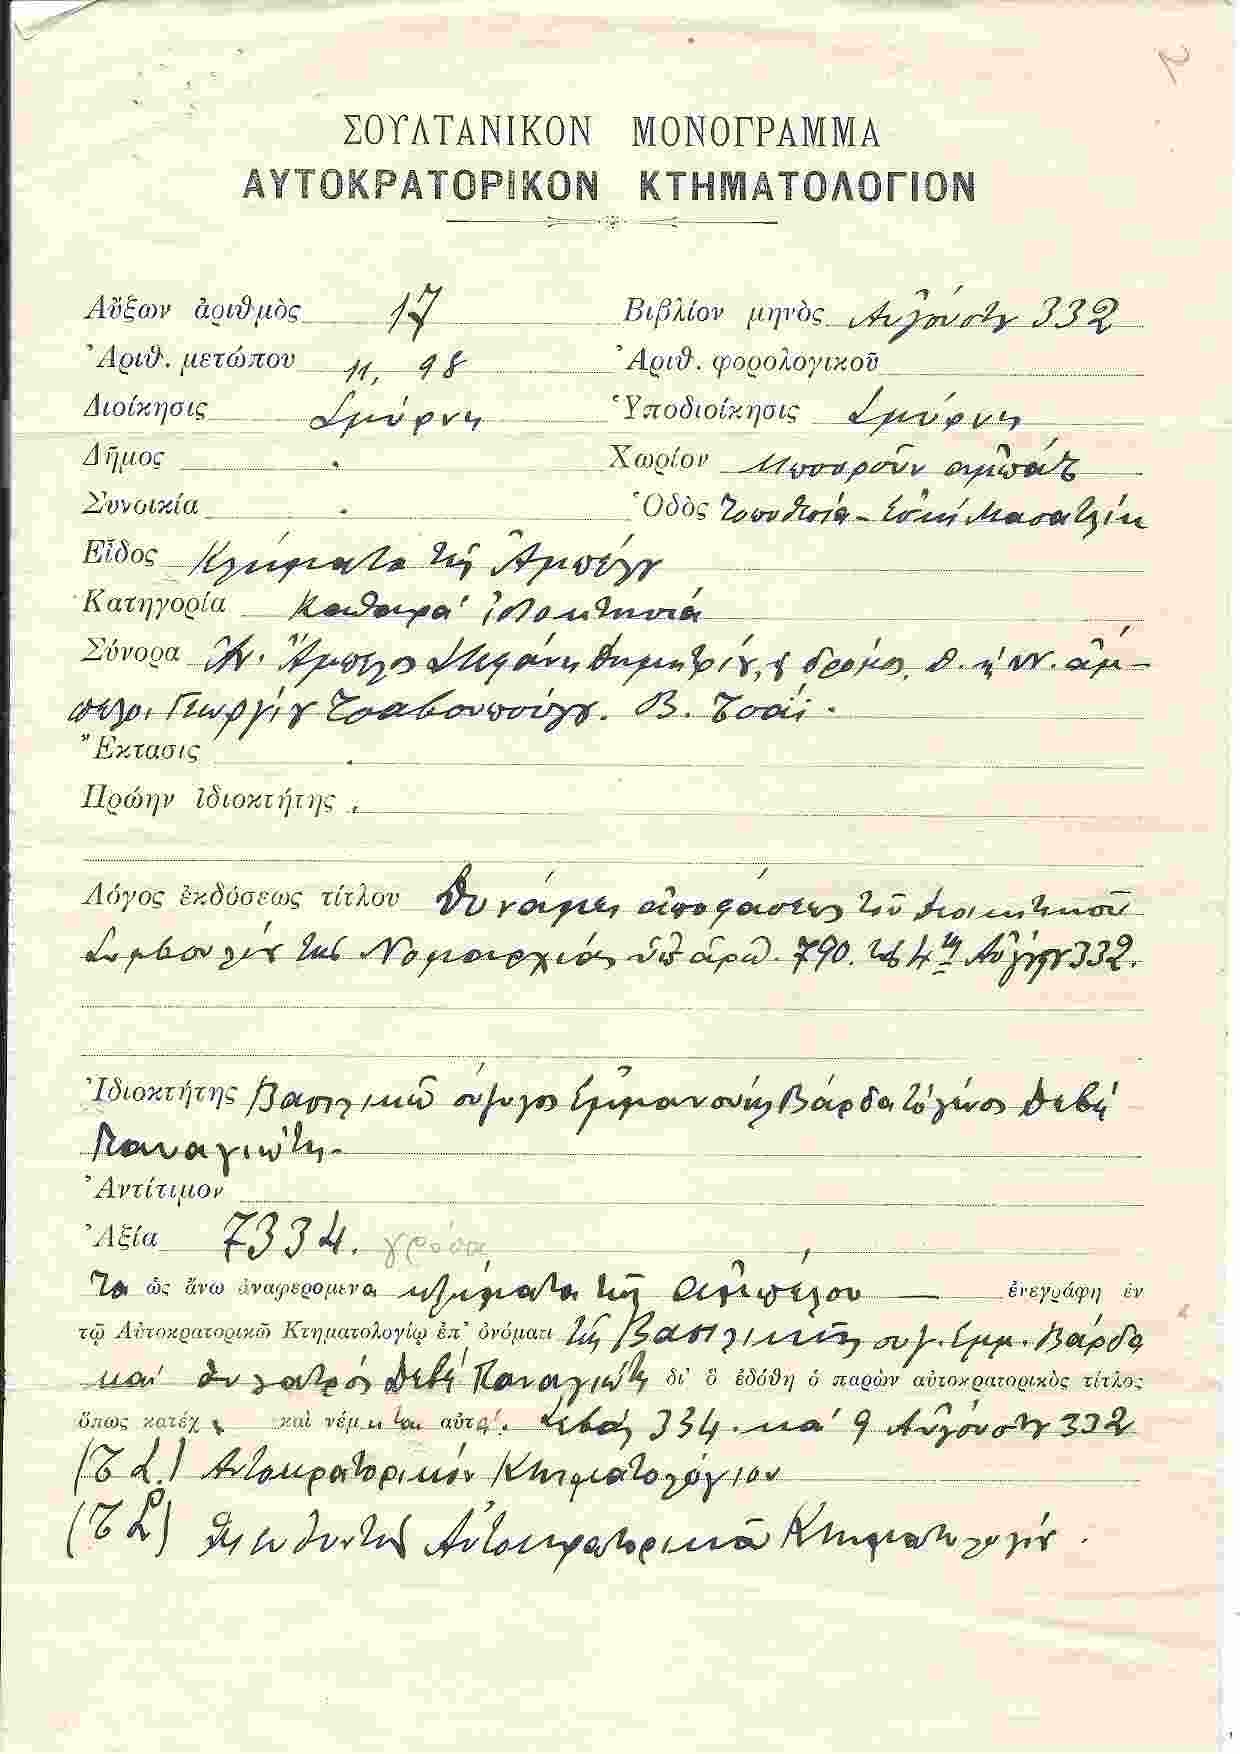 ΣΟΥΛΤΑΝΙΚΟΝ ΜΟΝΟΓΡΑΜΜΑ
ΑΥΤΟΚΡΑΤΟΡΙΚΟΝ ΚΤΗΜΑΤΟΛΟΓΙΟΝ
Αὔξων ἀριθμὸς 17 Βιβλίον μηνὸς Αὐγούστου 332
Ἀριθ. μετώπου 11, 98 Ἀριθ. φορολογικοῦ
Διοίκησις Σμύρνης Ὑποδιοίκησις Σμύρνης
Δῆμος . Χωρίον Μπουροῦν ἀμπάτ
Συνοικία . Ὁδὸς τοποθεσία - Ἐσκῆ
Εἶδος Κλήματα τῆς Ἀμπέλου
Κατηγορία Καθαρὰ ἰδιοκτησία
Σύνορα Ἀν. Ἄμπελος Στεφάνη Δημητρίου, δρόμος, Δ. ἄμ-
πελοι Γεωργίου Τσαβουπούλου. Β. Τσάϊ.
Ἔκτασις .
Πρῴην ἰδιοκτήτης .
Λόγος ἐκδόσεως τίτλου Δυνάμει ἀποφάσεως τοῦ Διοικητικοῦ
Συμβουλίου τῆς Νομαρχίας ὑπ' ἀριθ. 790. τῆς 4ης Αὐγούστου 332.
Ἰδιοκτήτης Βασιλικὴ σύζυγος Ἐμμανουὴλ Βάρδα τὸ γένος Δεβῆ
Παναγιώτη.
Ἀντίτιμον
Ἀξία 7334. γρόσια
Τα ὡς ἄνω ἀναφερομενα κλήματα τῆς ἀμπέλου — ἐνεγράφη ἐν
τῷ Αὐτοκρατορικῷ Κτηματολογίῳ ἐπ' ὀνόματι τῆς Βασιλικῆς συζ. Ἐμμ. Βάρδα
καὶ θυγατρὸς Δεβῆ Παναγιώτη δι' ὃ ἐδόθη ὁ παρὼν αὐτοκρατορικὸς τίτλος
ὅπως κατέχῃ καὶ νέμηται αὐτά. Σεβὰλ 334. καὶ 9 Αὐγούστου 332
(Τ.Σ.) Αὐτοκρατορικὸν Κτηματολόγιον
(Τ.Σ.) Διευθυντὴς Αὐτοκρατορικοῦ Κτηματολογίου.